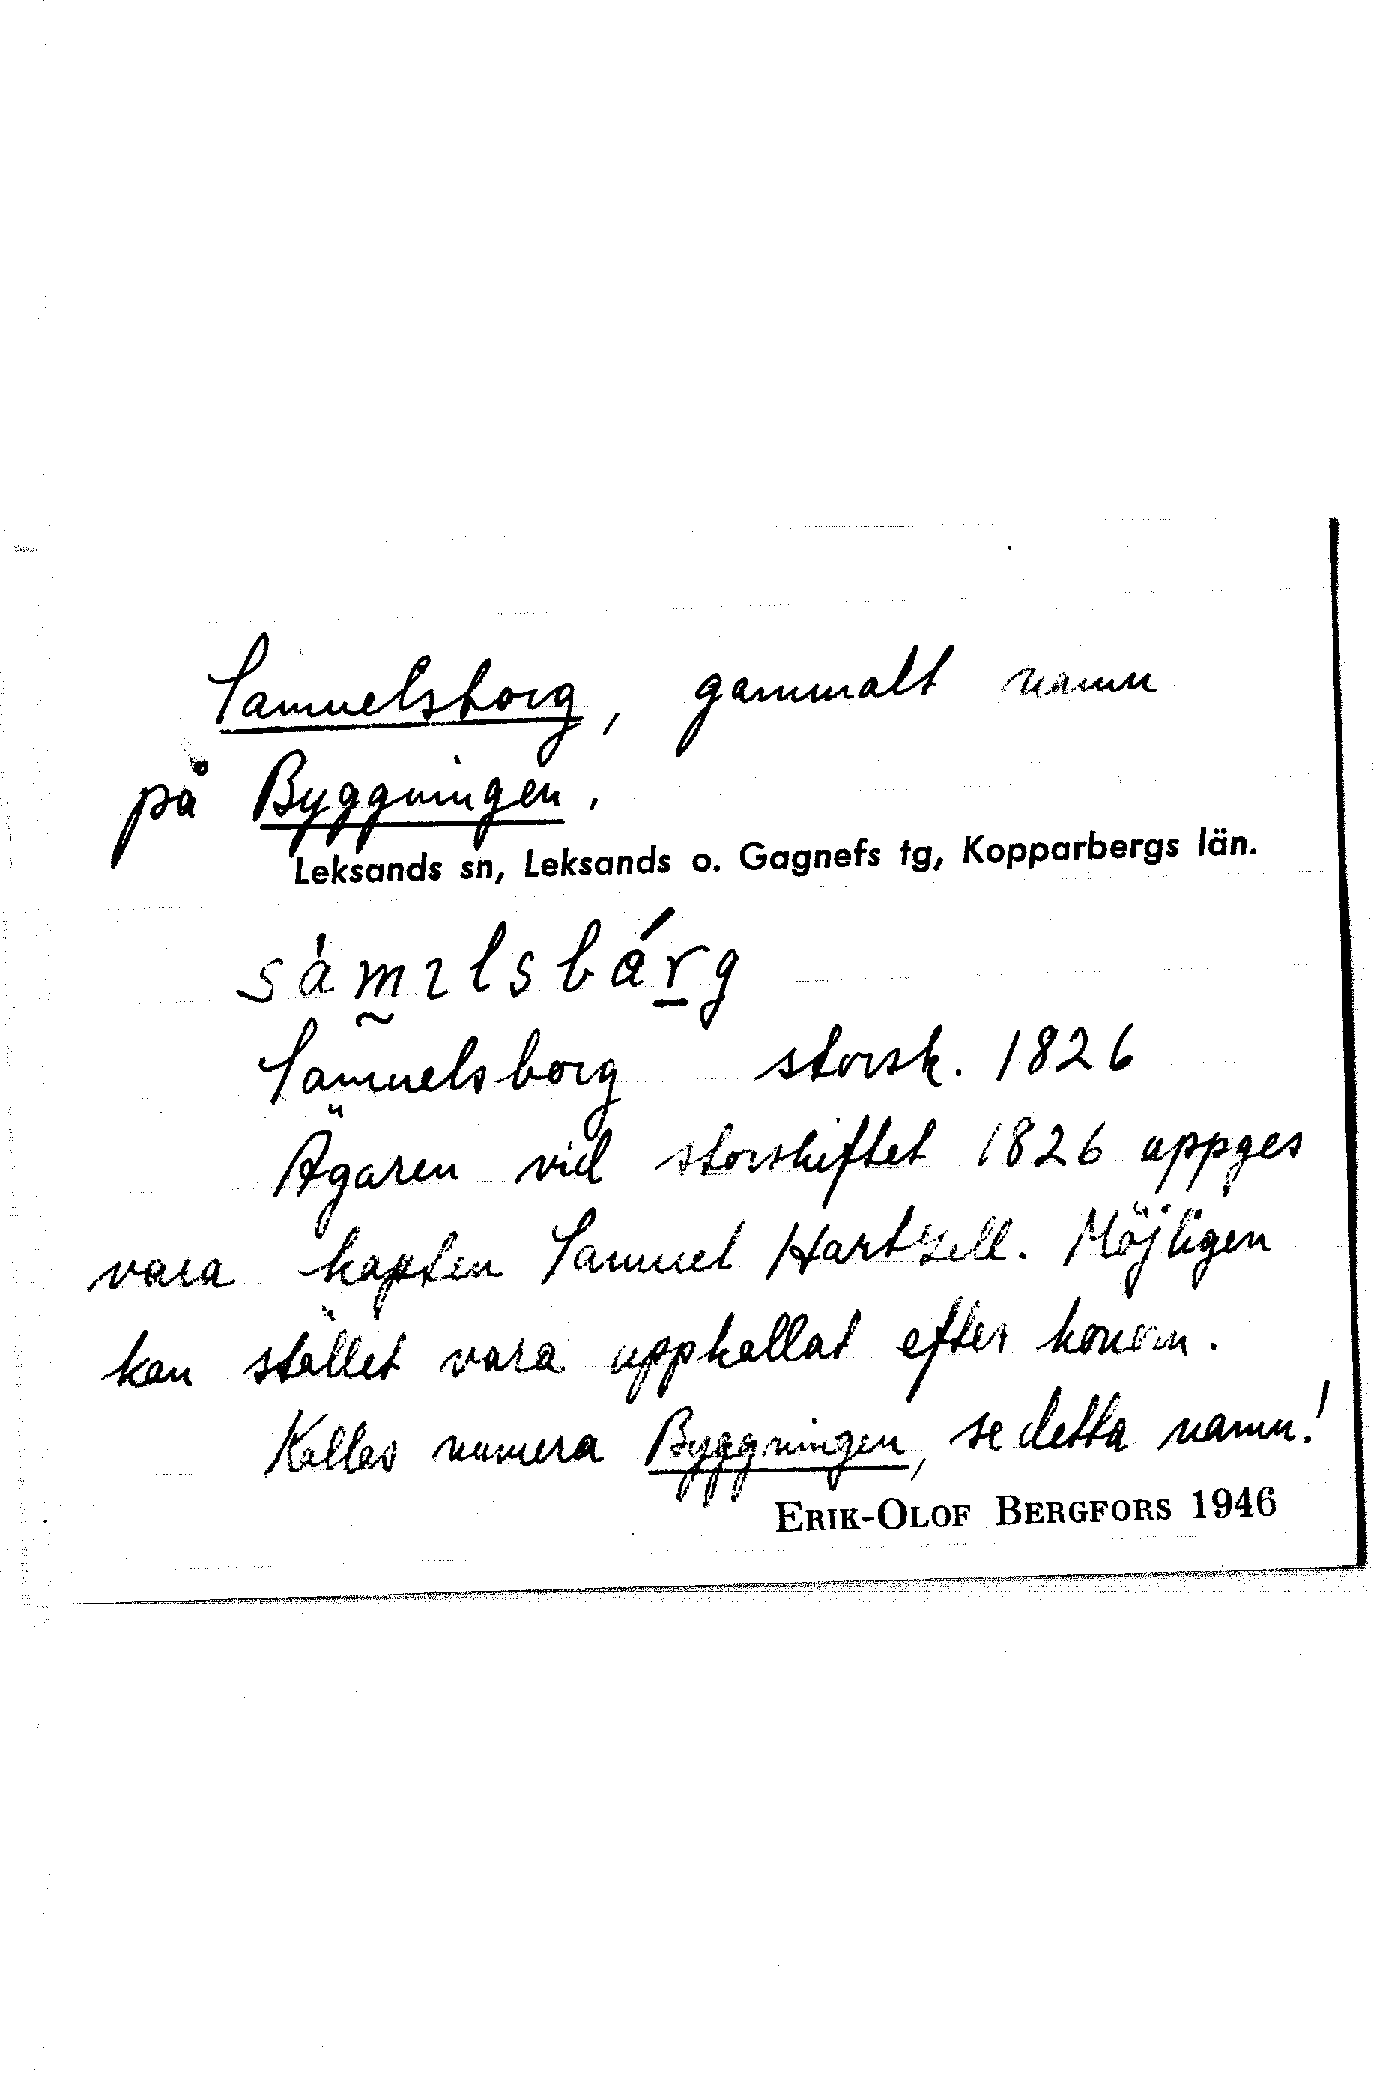 Samuelsborg, gammalt namn
på Byggningen.
Leksands sn, Leksands o. Gagnefs tg, Kopparbergs län.
sàm̰ɩlsbár̲g
Samuelsborg storsk. 1826
Ägaren vid storskiftet 1826 uppges
vara kapten Samuel Hartzell. Möjligen
kan stället vara uppkallat efter honom.
Kallas numera Byggningen, se detta namn!
ERIK-OLOF BERGFORS 1946